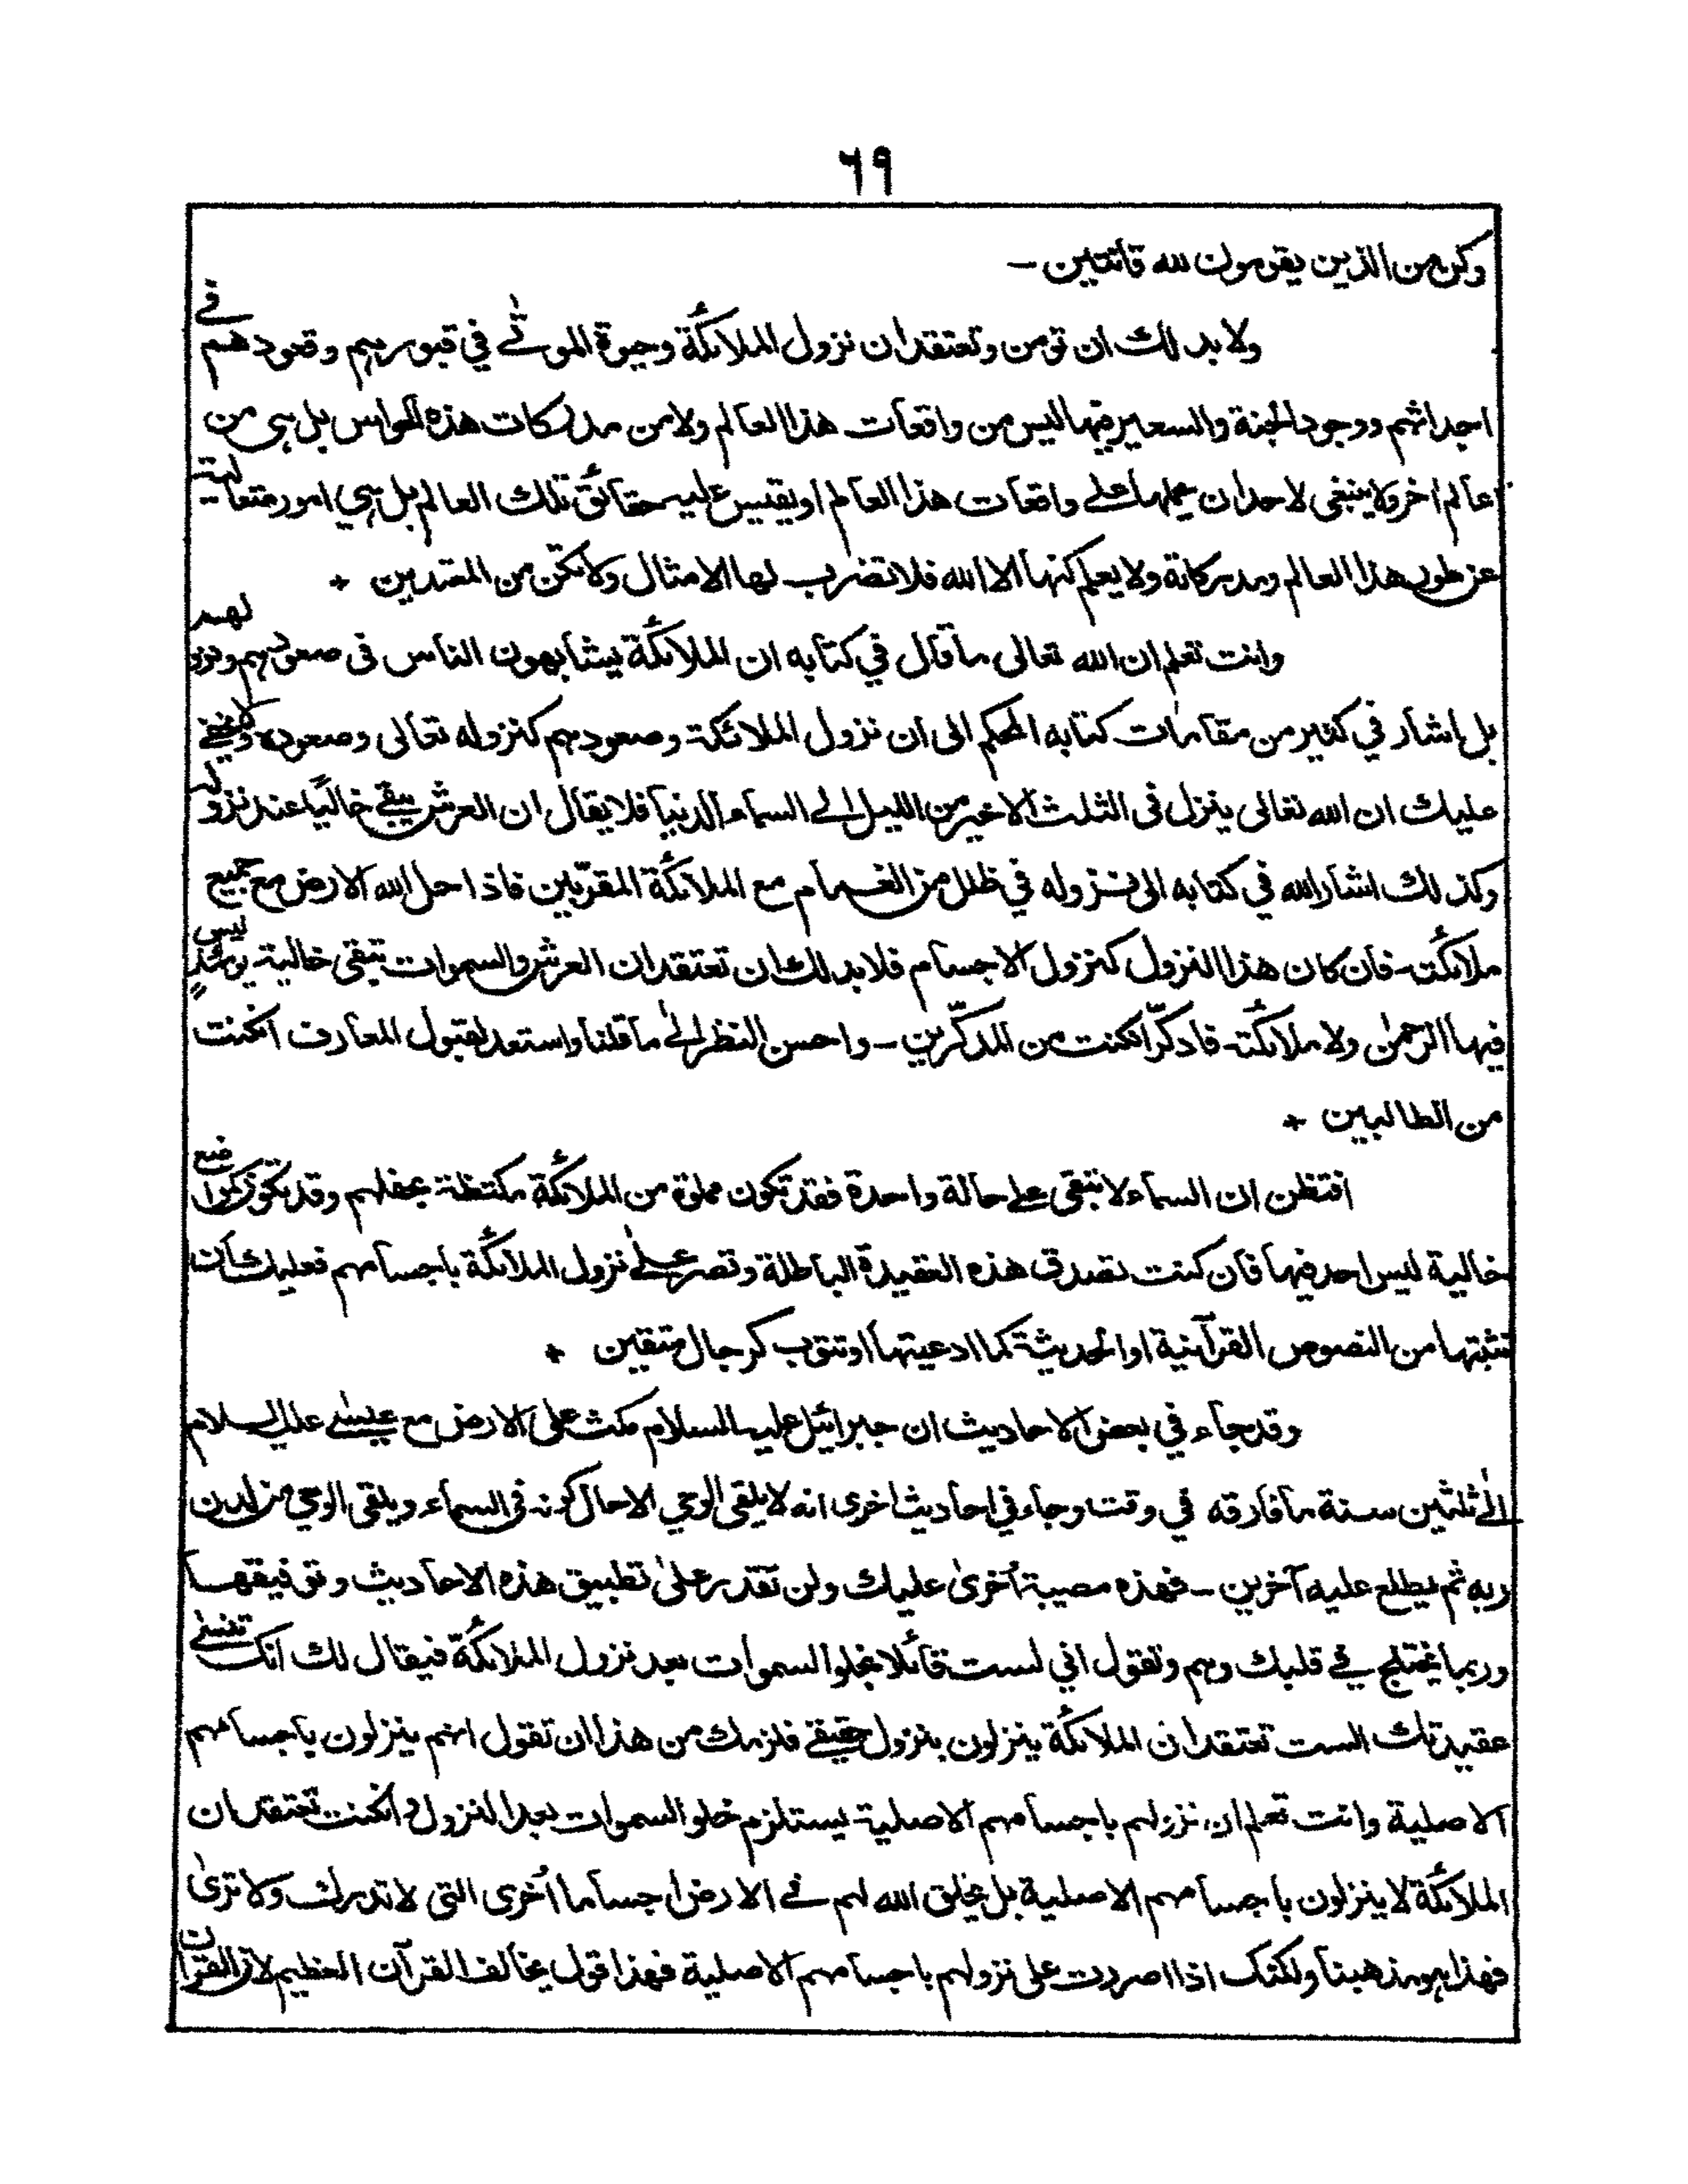 ٦٩
وكن من الذين يقومون لله قانتين ـ
ولا بد لك ان تؤمن وتعتقد ان نزول الملائكة وحيوة الموتٰے في قبورهم وقعودهم فے
اجداثهم ووجود الجنة والسعير فيها ليس من واقعات هذا العالم ولا من مدركات هذه الحواس بل هي من
عالم اخر ولا ينبغى لاحد ان يحملها علے واقعات هذا العالم او يقيس عليه حقائق تلك العالم بل هي امور متعالية
عن طور هذا العالم ومدركاته ولا يعلم كنهها الا الله فلا تضرب لها الامثال ولا تكن من المعتدين +
وانت تعلم ان الله تعالى ما قال في كتابه ان الملائكة يشابهون الناس فى صعودهم ونزولهم
بل اشار في كثير من مقامات كتابه المحكم الى ان نزول الملائكة وصعودهم كنزوله تعالى وصعوده ولا يخفے
عليك ان الله تعالى ينزل فى الثلث الاخير من الليل الے السماء الدنيا فلا يقال ان العرش يبقے خاليًا عند نزوله
وكذلك اشار الله في كتابه الى نزوله في ظلل من الغمام مع الملائكة المقرّبين فاذا حل الله الارض مع جميع
ملائكته ـ فان كان هذا النزول كنزول الاجسام فلا بد لك ان تعتقد ان العرش والسموات تبقى خالية يومئذٍ ليس
فيها الرحمٰن ولا ملائكته ـ فادكّر ان كنت من المدكّرين ـ واحسن النظر الےٰ ما قلنا واستعد لقبول المعارف ان كنت
من الطالبين +
افتظن ان السماء لا تبقى علے حالة واحدة فقد تكون مملوة من الملائكة مكتظة بحفلهم وقد تكون كموضع
خالية ليس احد فيها فان كنت تصدق هذه العقيدة الباطلة وتصر علےٰ نزول الملائكة باجسامهم فعليك ان
تثبتها من النصوص القرآنية او الحديثية كما ادعيتها او تتوب كرجال متقين +
وقد جاء في بعض الاحاديث ان جبرائيل عليه السلام مكث على الارض مع عيسٰے عليه السلام
الےٰ ثلٰثين سنة ما فارقه في وقت وجاء في احاديث اخرى انه لا يلقى الوحي الا حال كونه فى السماء ويلقى الوحي من لدن
ربه ثم يطلع عليه آخرين ـ فهذه مصيبة أخرىٰ عليك ولن تقدر علىٰ تطبيق هذه الاحاديث وتوفيقها
وربما يختلج فے قلبك وهم وتقول اني لست قائلا بخلو السموات بعد نزول الملائكة فيقال لك انك تنسٰے
عقيدتك الست تعتقد ان الملائكة ينزلون بنزول حقيقے فلزمك من هذا ان تقول انهم ينزلون باجسامهم
الاصلية وانت تعلم ان نزولهم باجسامهم الاصلية يستلزم خلو السموات بعد النزول وان كنت تعتقد ان
الملائكة لا ينزلون باجسامهم الاصلية بل يخلق الله لهم فے الارض اجساما أخرى التى لا تدرك ولا ترىٰ
فهذا هو مذهبنا ولكنك اذا اصررت على نزولهم باجسامهم الاصلية فهذا قول يخالف القرآن العظيم لان القرآن